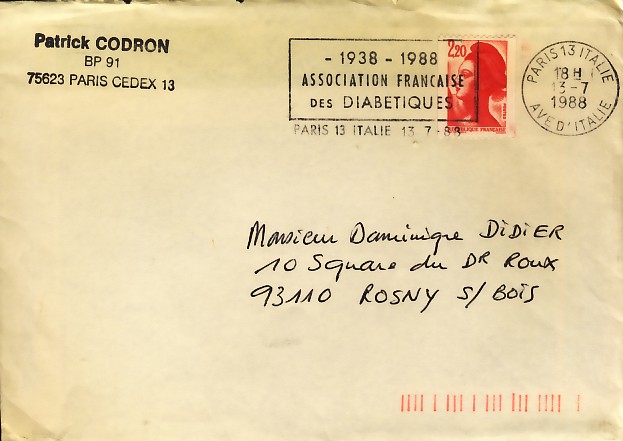 Patrick CODRON
BP 91
75623 PARIS CEDEX 13
- 1938 - 1988
ASSOCIATION FRANÇAISE
DES DIABETIQUES
PARIS 13 ITALIE 13 7 - 88
2,20
REPUBLIQUE FRANÇAISE
PARIS 13 ITALIE
18H
13-7
1988
AVE D'ITALIE
Monsieur Dominique DIDIER
10 Square du DR Roux
93110 ROSNY S/ BOIS